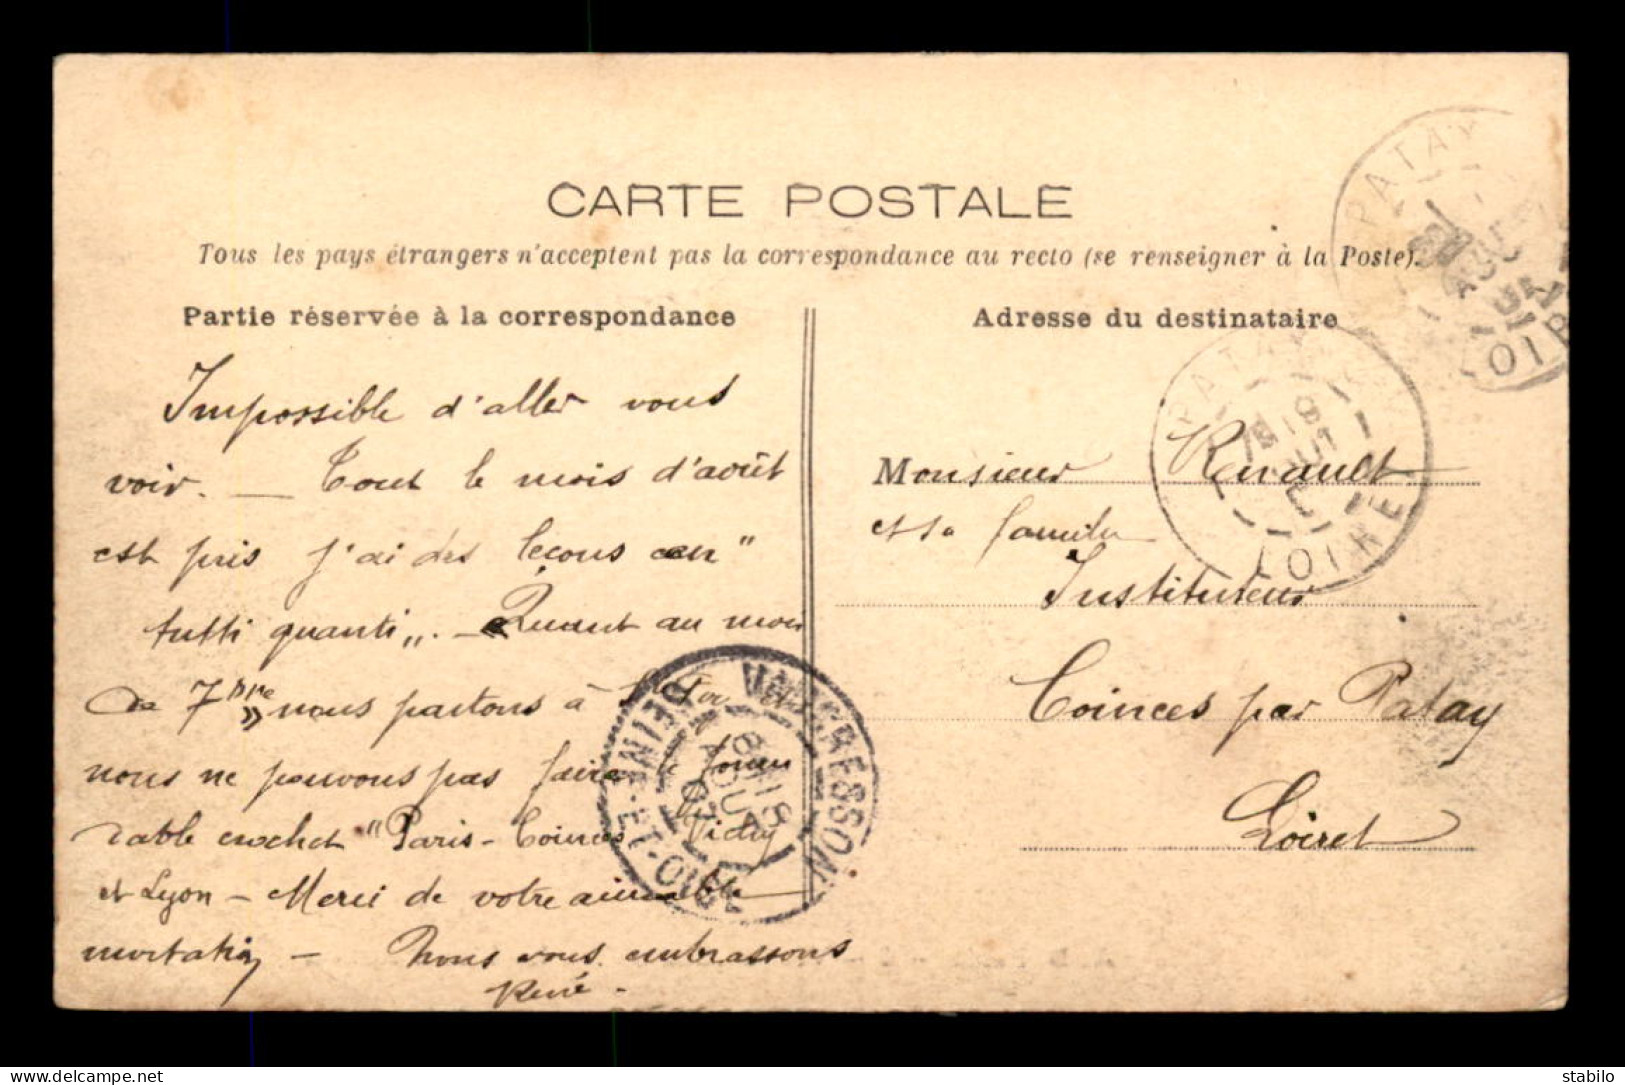 CARTE POSTALE
Tous les pays étrangers n'acceptent pas la correspondance au recto (se renseigner à la Poste).
Partie réservée à la correspondance
Impossible d'aller vous
voir. — Tout le mois d'août
est pris j'ai des leçons en "
tutti quanti ". — Quant au mois
de 7bre nous partons à
nous ne pouvons pas faire le
crochet "Paris - Coinces Vichy
et Lyon — Merci de votre aimable
invitation — Nous vous embrassons
René -
Adresse du destinataire
Monsieur Renault
et sa famille
Instituteur
Coinces par Patay
Loiret
PATAY
AOUT
LOIRET
PATAY
18
AOUT
LOIRET
VAUCRESSON
8H15
AOUT
07
SEINE-ET-OISE
delcampe.net
stabilo